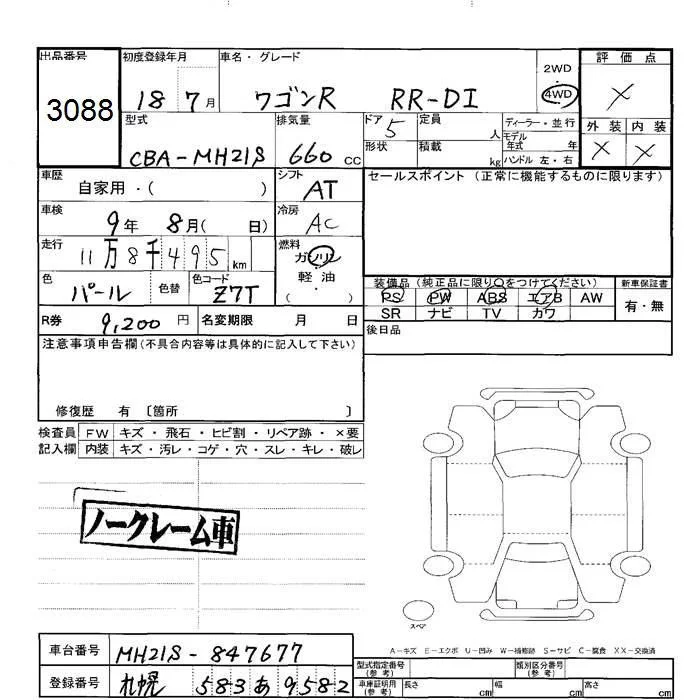 出品番号 初度登録年月 車名・グレード 2WD 評価点
3088 18 7月 ワゴンR RR-DI 4WD ×
型式 排気量 ドア 5 定員 人 ディーラー・並行 外装 内装
CBA-MH21S 660 cc 形状 積載 kg モデル年式 年 × ×
ハンドル 左・右
車歴 自家用・( ) シフト AT セールスポイント (正常に機能するものに限ります)
車検 9年 8月( 日) 冷房 AC
走行 11万8千495 km 燃料 ガソリン
軽・油
( )
色 パール 色替 色コード Z7T
装備品 (純正品に限り○をつけてください) 新車保証書
PS PW ABS エアB AW 有・無
SR ナビ TV カワ
R券 9,200 円 名変期限 月 日 後日品
注意事項申告欄(不具合内容等は具体的に記入して下さい)
修復歴 有 〔箇所 〕
検査員 FW キズ・飛石・ヒビ割・リペア跡・×要
記入欄 内装 キズ・汚レ・コゲ・穴・スレ・キレ・破レ
ノークレーム車
スペア
A-キズ E-エクボ U-凹み W-補修跡 S-サビ C-腐食 XX-交換済
車台番号 MH21S-847677 型式指定番号(参考) 類別区分番号(参考)
登録番号 札幌 583 あ 9582 車庫証明用(参考) 長さ cm 幅 cm 高さ cm